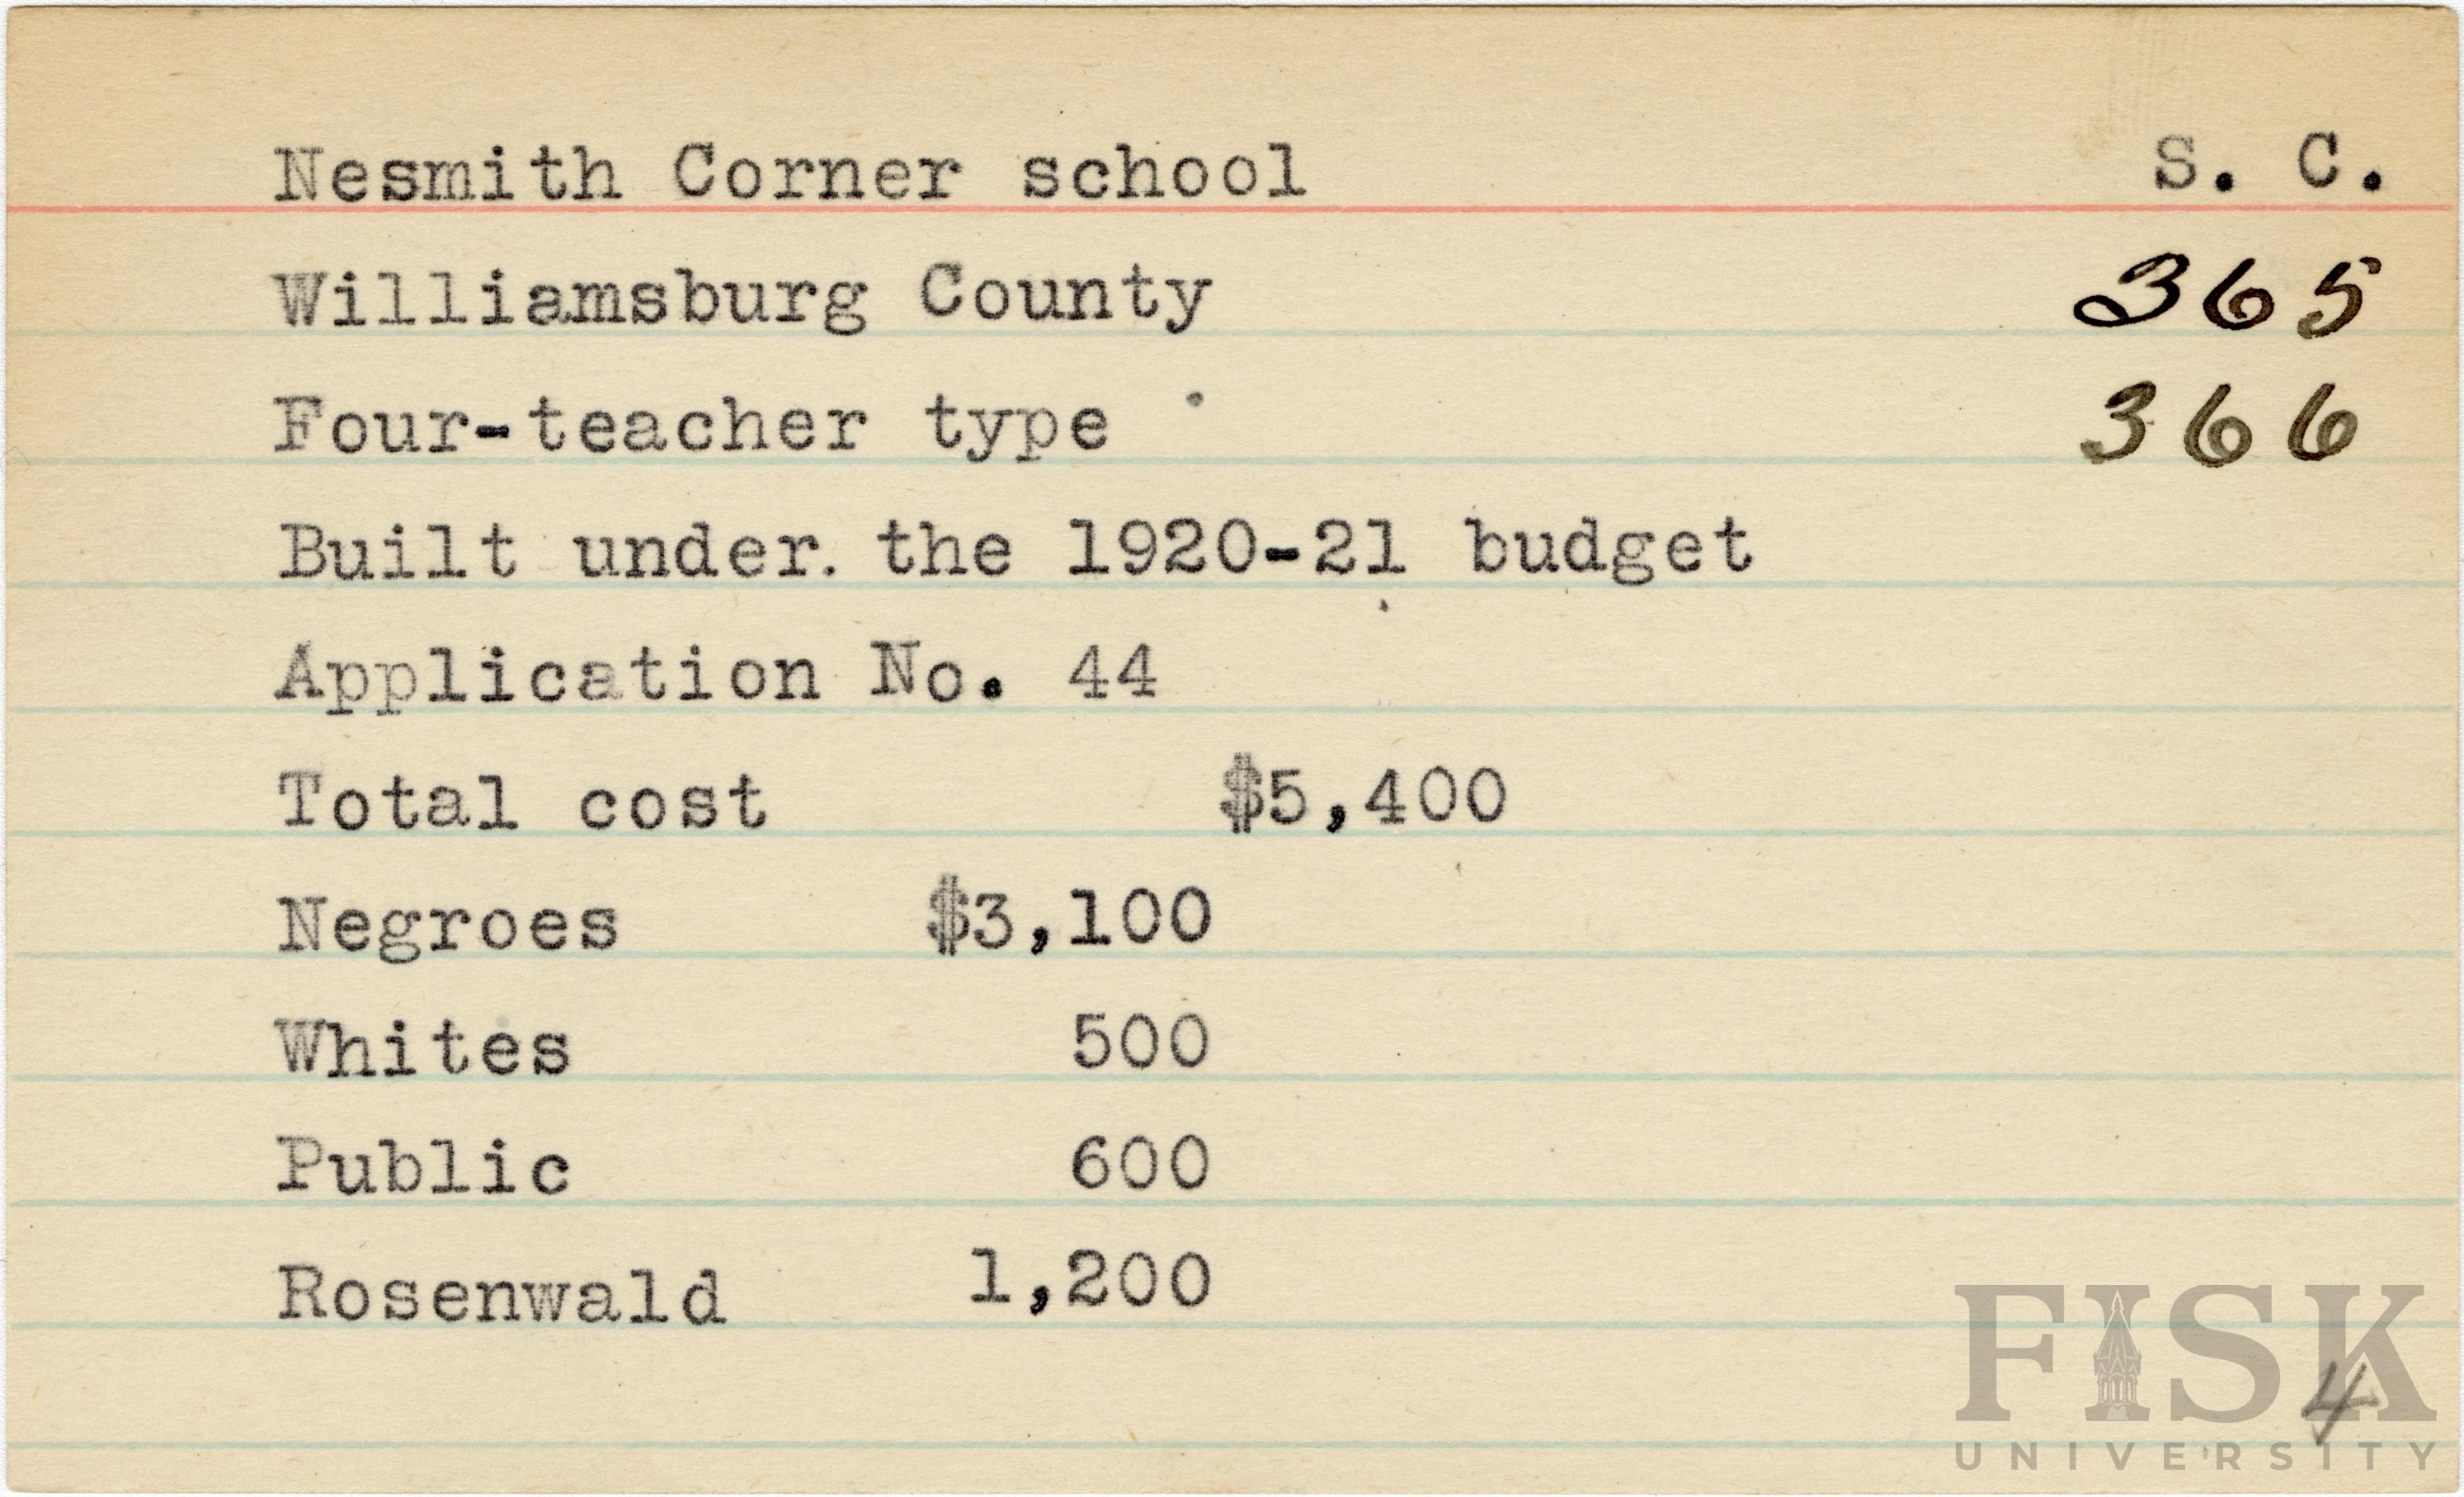 Nesmith Corner school S. C.
Williamsburg County 365
Four-teacher type 366
Built under. the 1920-21 budget
Application No. 44
Total cost $5,400
Negroes $3,100
Whites 500
Public 600
Rosenwald 1,200
FISK
4
UNIVERSITY